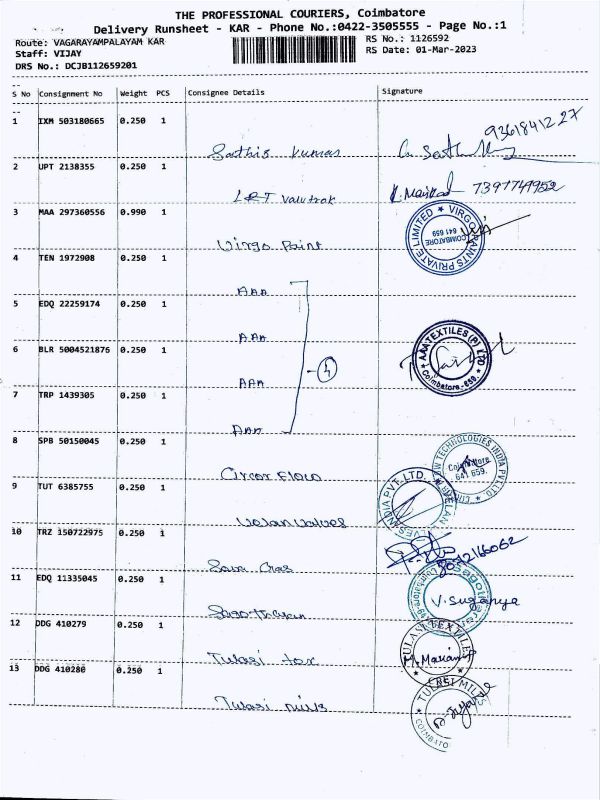 THE PROFESSIONAL COURIERS, Coimbatore
Delivery Runsheet - KAR - Phone No.:0422-3505555 - Page No.:1
Route: VAGARAYAMPALAYAM KAR
RS No.: 1126592
Staff: VIJAY
RS Date: 01-Mar-2023
DRS No.: DCJB112659201
S No Consignment No Weight PCS Consignee Details Signature
1 IXM 503180665 0.250 1
9361841227
Sathis Kumar
2 UPT 2138355 0.250 1
LRT Valutrak 7397741952
3 MAA 297360556 0.990 1
VIRGO PAINTS PRIVATE LIMITED
COIMBATORE
641 659
Virgo Paint
4 TEN 1972908 0.250 1
AAA
5 EDQ 22259174 0.250 1
AAA
6 BLR 5004521876 0.250 1
AAA TEXTILES (P) LTD
Coimbatore-659.
4
AAA
7 TRP 1439305 0.250 1
AAA
8 SPB 50150045 0.250 1
CIRCOR FLOW TECHNOLOGIES INDIA PVT.LTD
Coimbatore
641 659.
Circor Flow
9 TUT 6385755 0.250 1
VELAN VALVES INDIA PVT. LTD.
Velan valves
10 TRZ 150722975 0.250 1
8042166062
11 EDQ 11335045 0.250 1
V. Suganya
12 DDG 410279 0.250 1
TULASI TEXTILES
M. Mariam
Tulasi tex
13 DDG 410280 0.250 1
TULASI MILLS
COIMBATORE
Tulasi mills